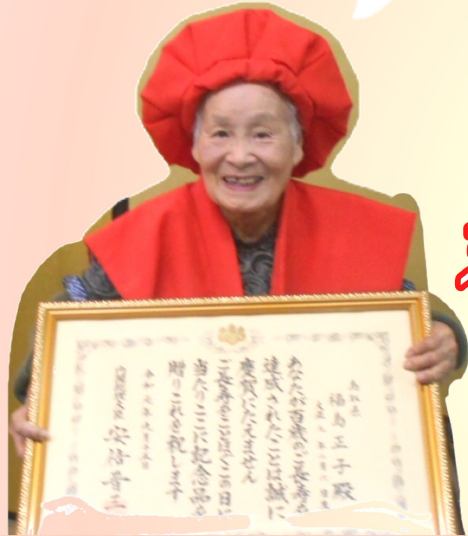 鳥取県
福島正子殿
あなたが百歳のご長寿を
達成されたことは誠に
慶賀にたえません
ご長寿をことほぎこの日に
当たりここに記念品を
贈りこれを祝します
令和元年九月十五日
内閣総理大臣 安倍晋三